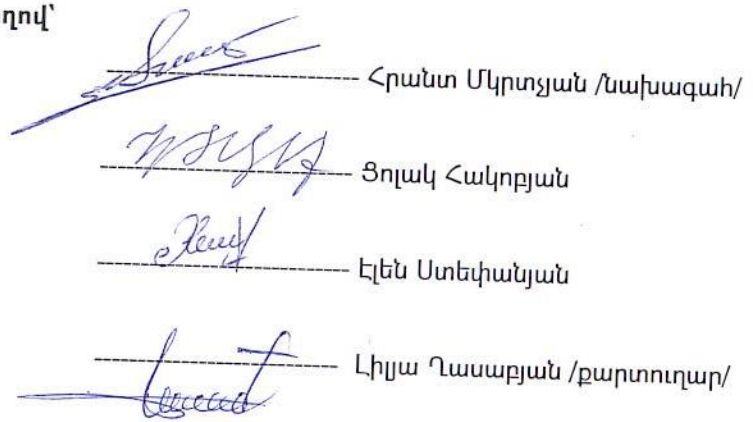 ղով՝
Հրանտ Մկրտչյան /նախագահ/
Ցոլակ Հակոբյան
Էլեն Ստեփանյան
Լիլյա Ղասաբյան /քարտուղար/